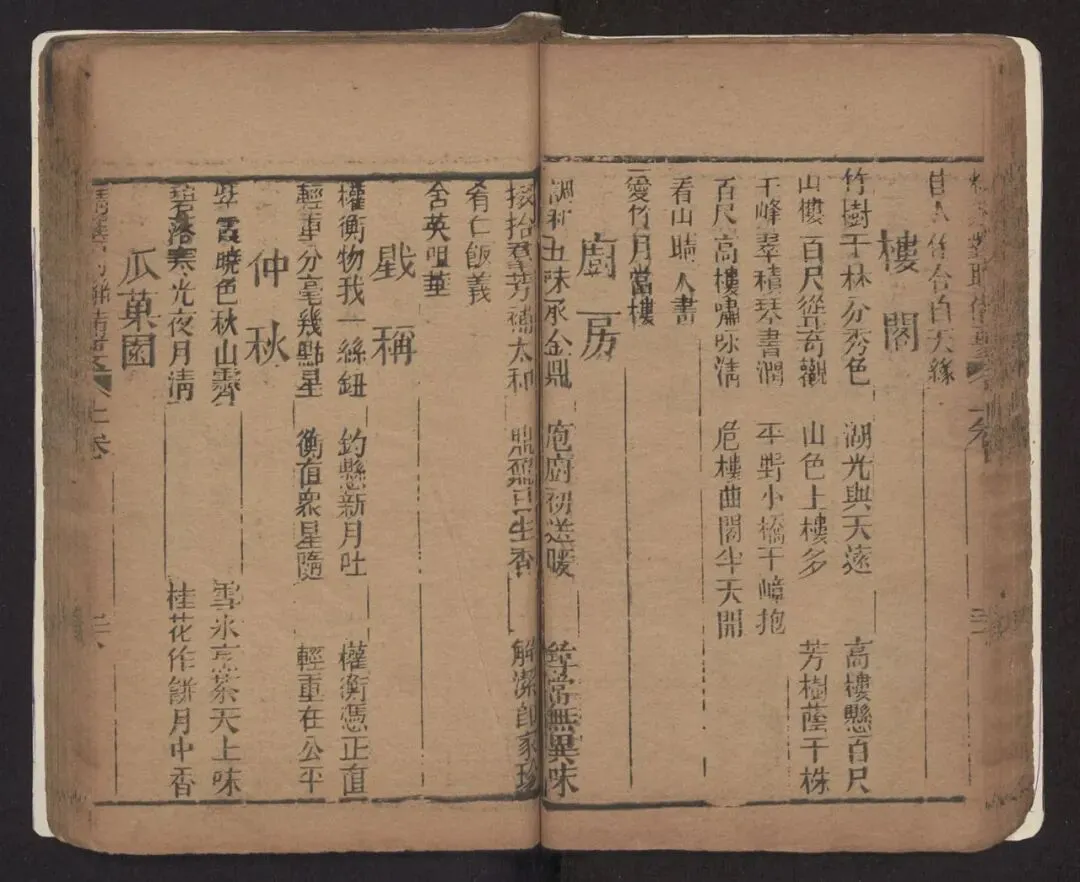 樓閣
竹樹千林分秀色 湖光與天遠 高樓懸百尺
山樓百尺從奇觀 山色上樓多 芳樹蔭千株
千峰翠積琴書潤 平野小橋千嶂抱
百尺高樓嘯咏清 危樓曲閣半天開
看山晴入畫
愛竹月當樓
廚房
調和五味承金鼎 庖廚初送暖 尋常無異味
掇拾羣芳補太和 生香 解潔即家珍
肴仁飯義
含英咀華
戥稱
權衡物我一絲鈕 鈞懸新月吐 權衡憑正直
輕重分毫幾點星 衡值衆星隨 輕重在公平
仲秋
紫霞曉色秋山霽 雪氷烹茶天上味
碧落寒光夜月清 桂花作餅月中香
瓜菓園
上卷